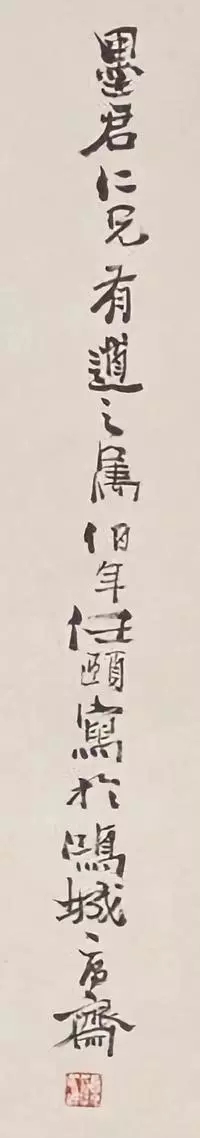 墨君仁兄有道之属伯年任頤寫於鴻城齋